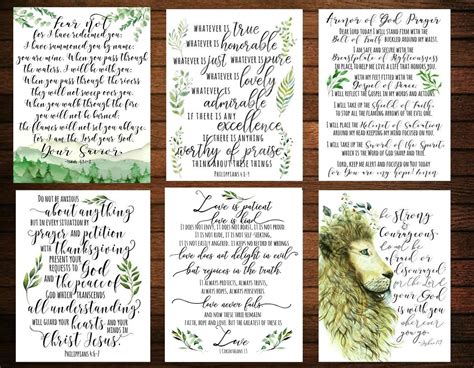 Fear not
for I have redeemed you;
I have summoned you by name;
you are mine. When you pass through
the waters, I will be with you;
they will not sweep over you.
When you walk through the fire
you will not be burned;
the flames will not set you ablaze.
for I am the Lord your God
Your Savior.
Whatever is true
whatever is
honorable
whatever is just
whatever is pure
whatever is
lovely
whatever is
admirable
if there is any
excellence
if there is anything
worthy of praise
think about these things
Philippians 4:8
Armor of God Prayer
Dear Lord today I will stand firm with the
Belt of Truth buckled around my waist.
I am safe and secure with the
Breastplate of Righteousness
Please help me to live a life that honors you.
With my feet fitted with the
Gospel of Peace,
I will reflect God in my words and actions.
I will take up the Shield of Faith,
to stop all the flaming arrows
of the enemy.
I will take up the Helmet of Salvation
around my head keeping my mind focused on you.
I will take up the Sword of the Spirit
which is the Word of God sharp and true.
Lord, keep me alert and focused on you today
for You are my living Hope!
Do not be anxious
about anything
but in every situation by
prayer and petition
with
thanksgiving
present your
requests to
God
and
the peace of
God
which transcends
all understanding,
will guard your
hearts
and your
minds in
Christ Jesus.
Philippians 4:6-7
Love is patient
love is kind
It does not envy, it does not boast, it is not proud.
It does not dishonor others, it is not self-seeking,
it is not easily angered, it keeps no record of wrongs
love does not delight in evil
but rejoices in the truth.
It always protects, always trusts,
always hopes, always perseveres.
love never fails.
and now these three remain
faith, hope and love. But the greatest of these is
Love
1 Corinthians 13
be strong
&
courageous
do not be
afraid or
discouraged
for the Lord
your God
is with you
wherever you
go.
Joshua 1:9